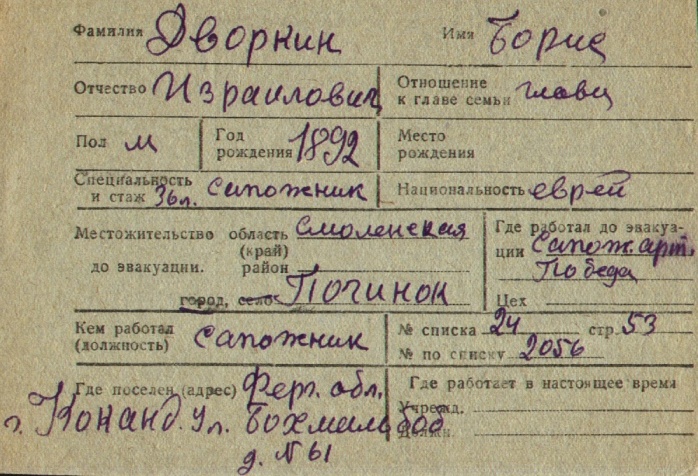 Фамилия Дворкин Имя Борис
Отчество Израилович Отношение к главе семьи главы
Пол м Год рождения 1892 Место рождения
Специальность и стаж 36 л. сапожник Национальность еврей
Местожительство область Смоленская Где работал до эвакуа-
(край) ции Сапож. арт.
до эвакуации. район Победа
город, село Починок Цех
Кем работал (должность) сапожник № списка 24 стр. 53
№ по списку 2056
Где поселен (адрес) Ферг. обл. Где работает в настоящее время
г. Коканд. ул. Учрежд.
Должн.
д. № 61